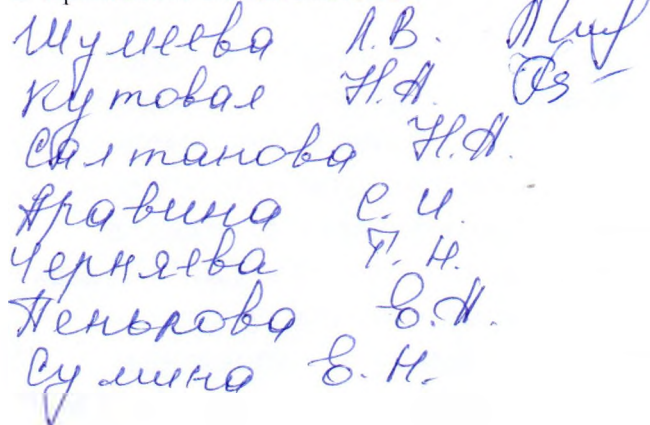 Шумеева Л.В.
Кутовая Н.А.
Салтанова Н.А.
Аравина С.И.
Черняева Т.Н.
Пенькова Е.А.
Сумина Е.Н.